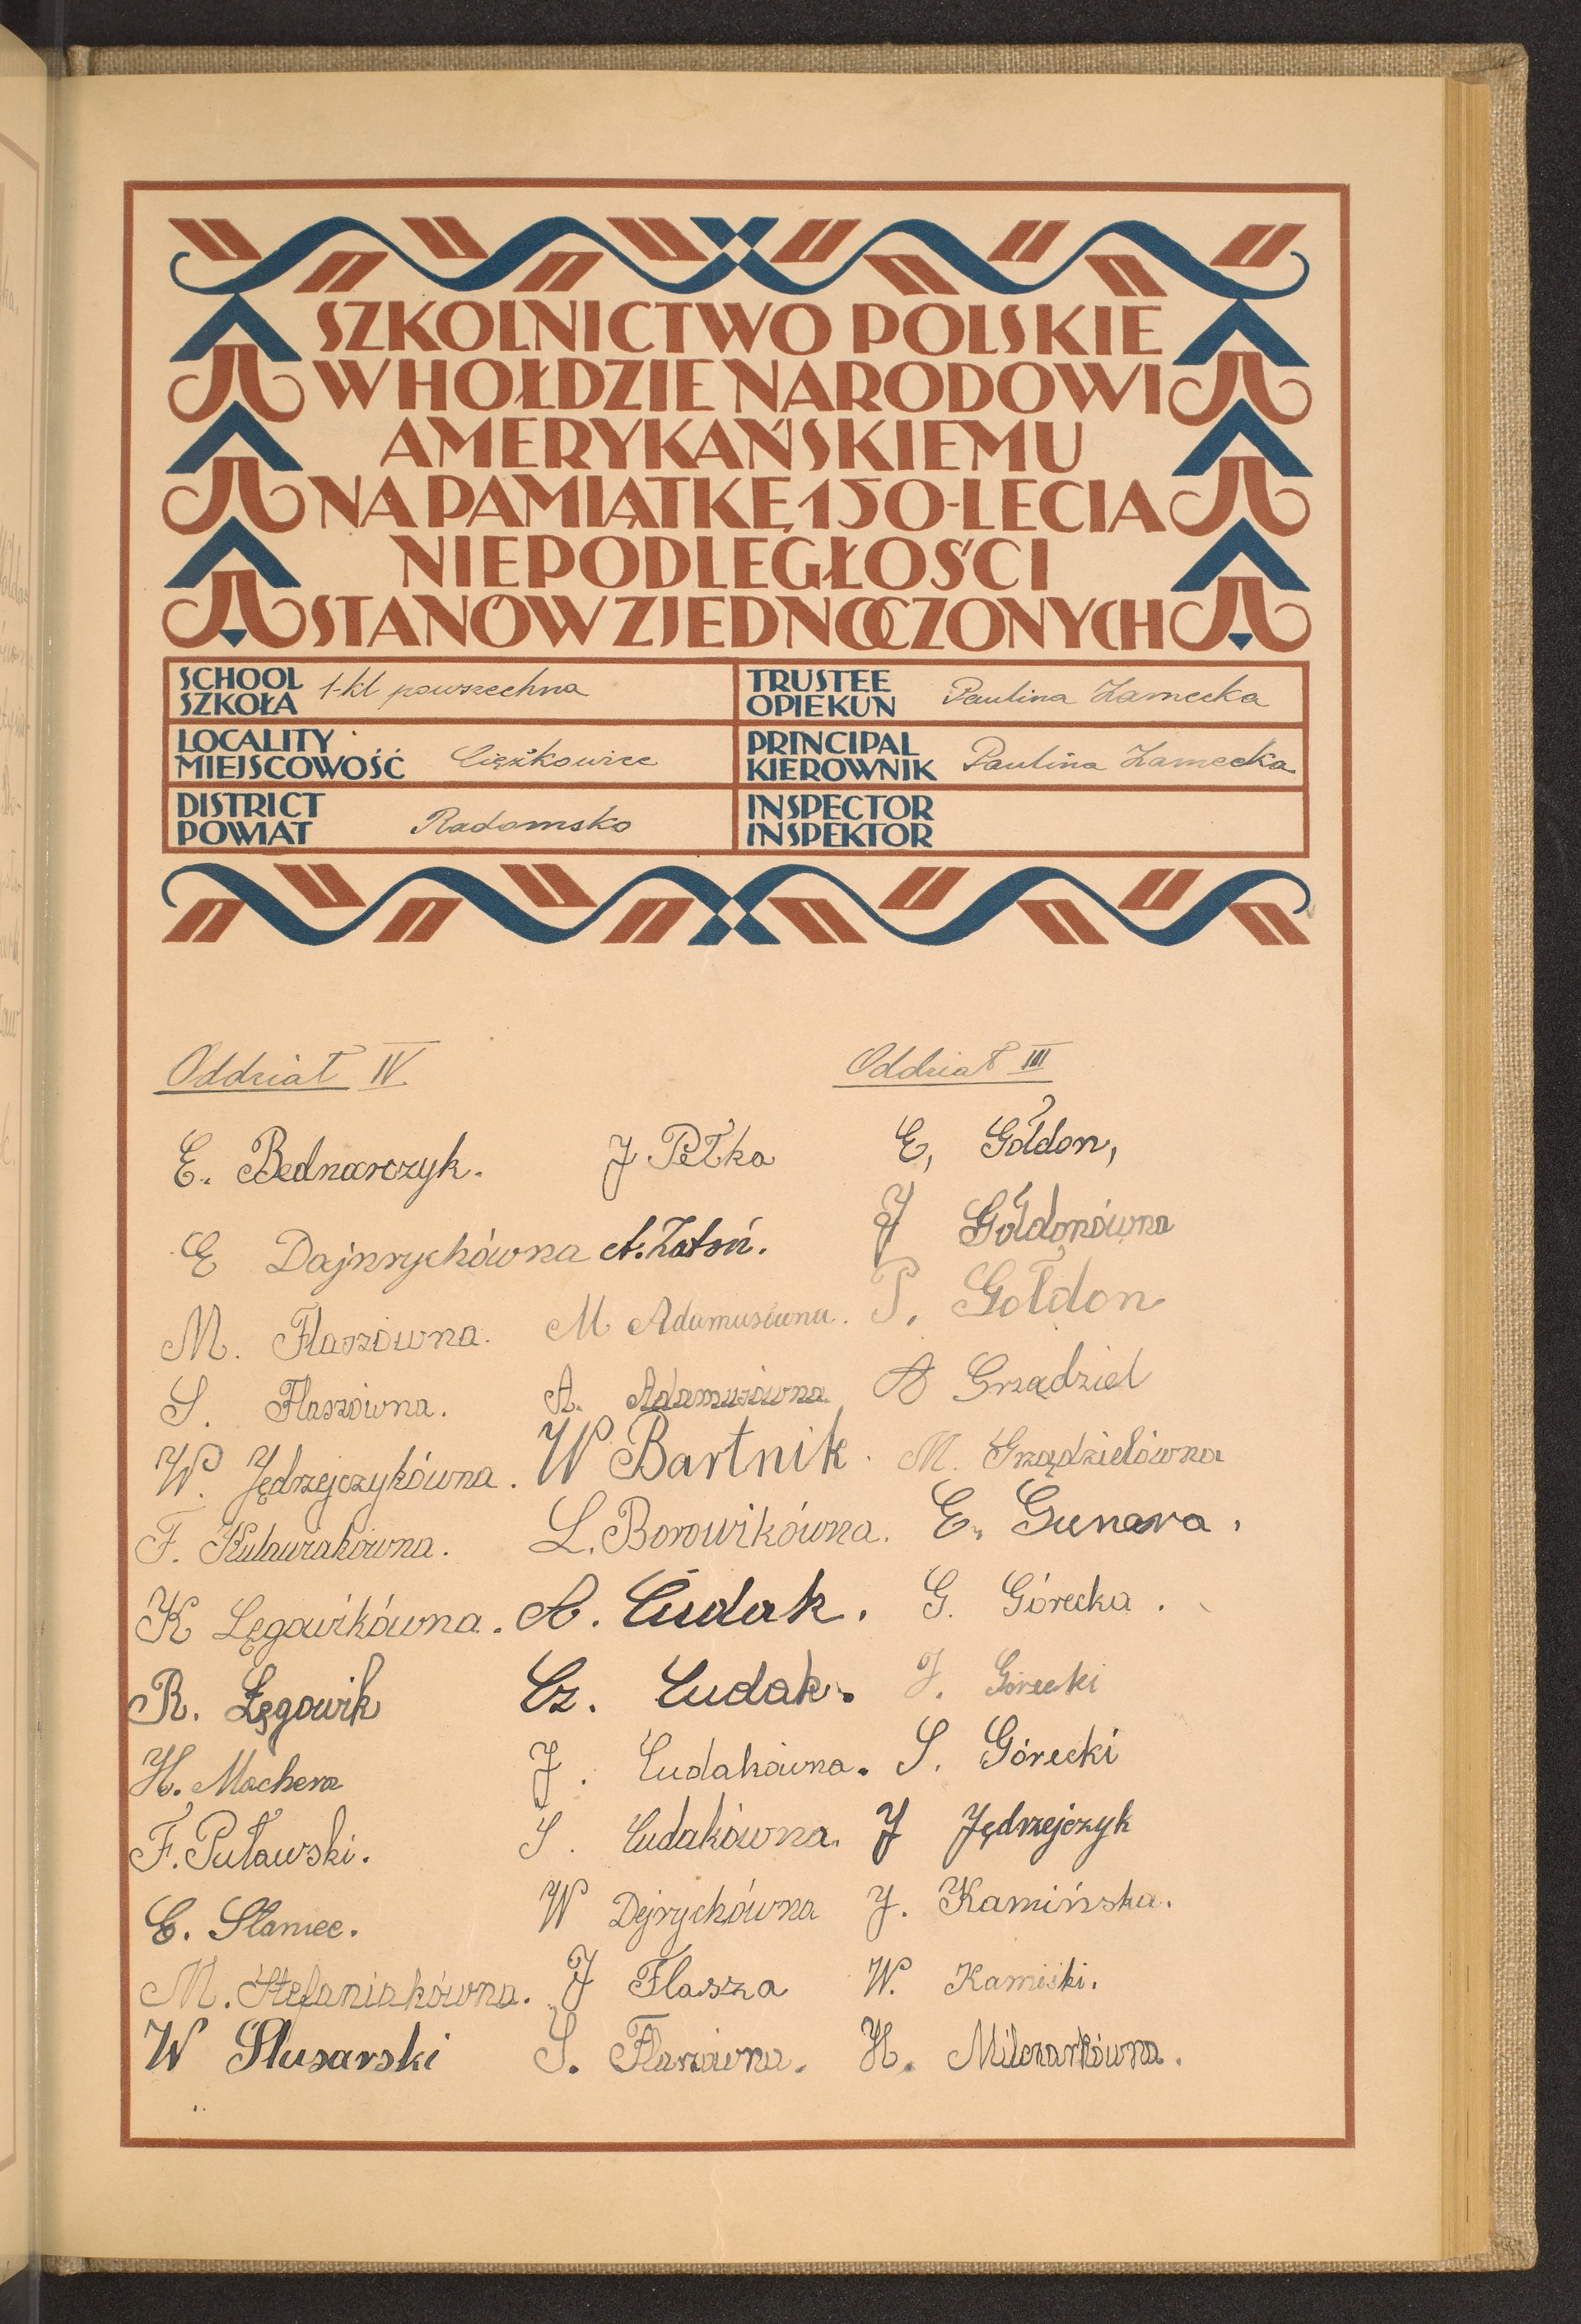 SZKOLNICTWO POLSKIE
W HOŁDZIE NARODOWI
AMERYKAŃSKIEMU
NA PAMIĄTKĘ 150-LECIA
NIEPODLEGŁOŚCI
STANÓW ZJEDNOCZONYCH
SCHOOL
SZKOŁA 1-kl powszechna
TRUSTEE
OPIEKUN Paulina Zamecka
LOCALITY
MIEJSCOWOŚĆ Ciężkowice
PRINCIPAL
KIEROWNIK Paulina Zamecka
DISTRICT
POWIAT Radomsko
INSPECTOR
INSPEKTOR
Oddział IV
E. Bednarczyk.
E Dajnrychówna
M. Flaszówna.
S. Flaszówna.
W. Jędrzejczykówna.
F. Kulawiakówna.
K Łęgowikówna.
R. Łęgowik
H. Machera
F. Puławski.
E. Słaniec.
M. Stefaniakówna.
W Ślusarski
J Pełka
A. Zatoń.
M Adamusówna.
A. Adamusówna
W Bartnik.
L. Borowikówna.
A. Cudak.
Cz. Cudak.
J. Cudakówna.
S. Cudakówna.
W Dejrychówna
J Flasza
S. Flaszówna.
Oddział III
E, Gółdon,
J Gółdonówna
P. Gołdon
A Grządziel
M. Grządzielówna
E. Gunara.
G. Górecka.
J. Górecki
S. Górecki
J Jędrzejczyk
J. Kamińska.
W. Kamiski.
H. Milczarkówna.